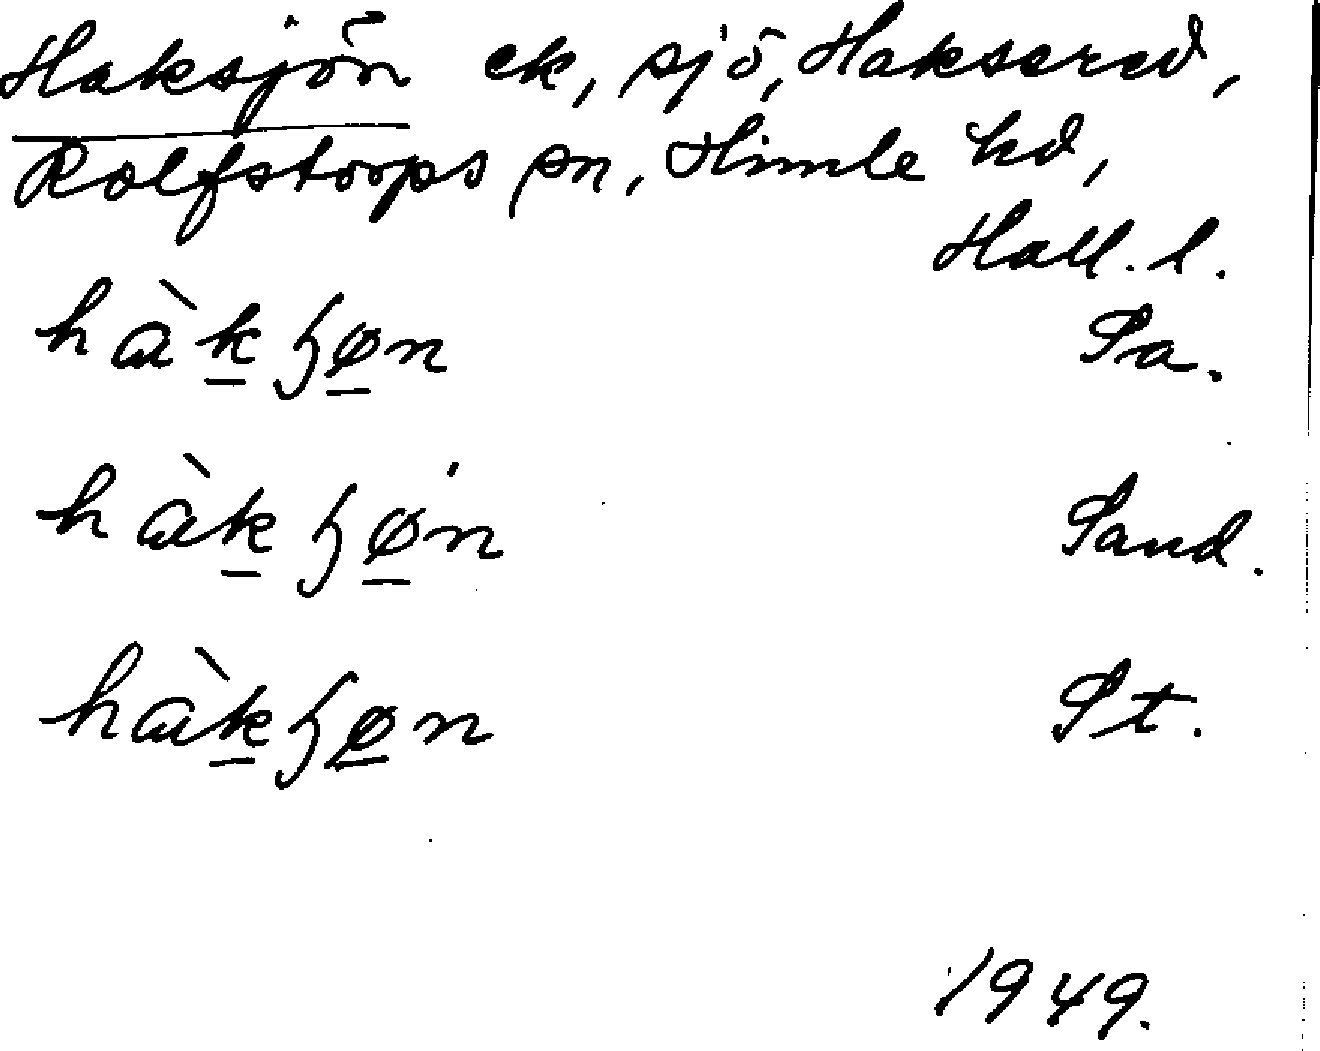 Haksjön ek, sjö, Haksered,
Rolfstorps sn, Himle hd,
Hall. l.
hàk̲ ʒø̲n Sa.
hàk̲ ʒø̲n Sand.
hàk̲ʒø̲n St.
1949.